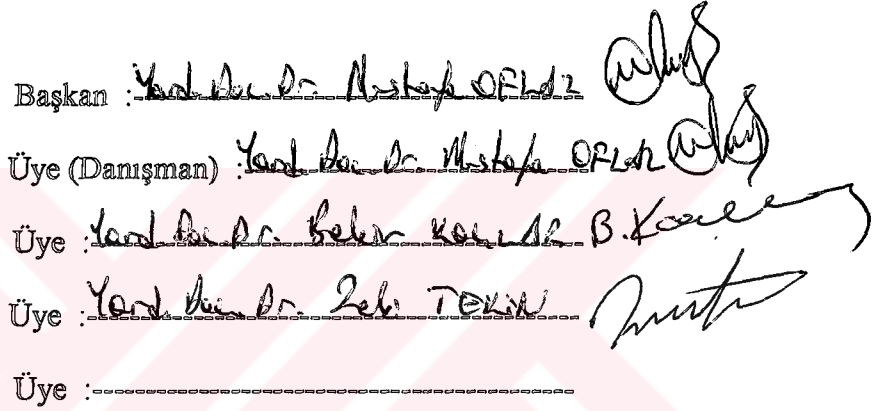 Başkan : Yard. Doç. Dr. Mustafa OFLAZ
Üye (Danışman) : Yard. Doç. Dr. Mustafa OFLAZ
Üye : Yard. Doç. Dr. Bekir B. Koç
Üye : Yard. Doç. Dr. Zeki TEKİN
Üye :